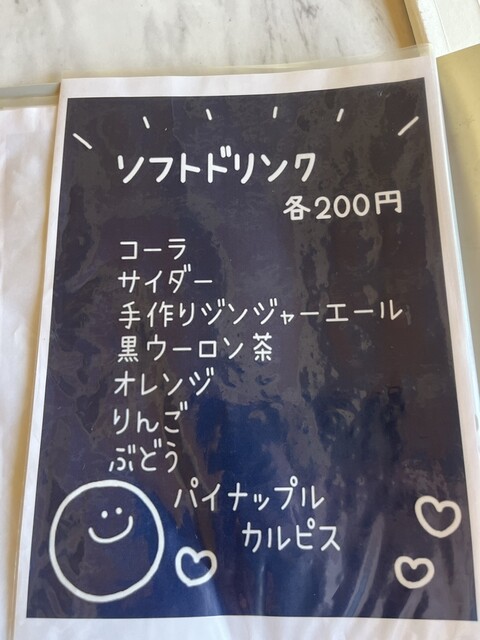 ソフトドリンク
各200円
コーラ
サイダー
手作りジンジャーエール
黒ウーロン茶
オレンジ
りんご
ぶどう
パイナップル
カルピス